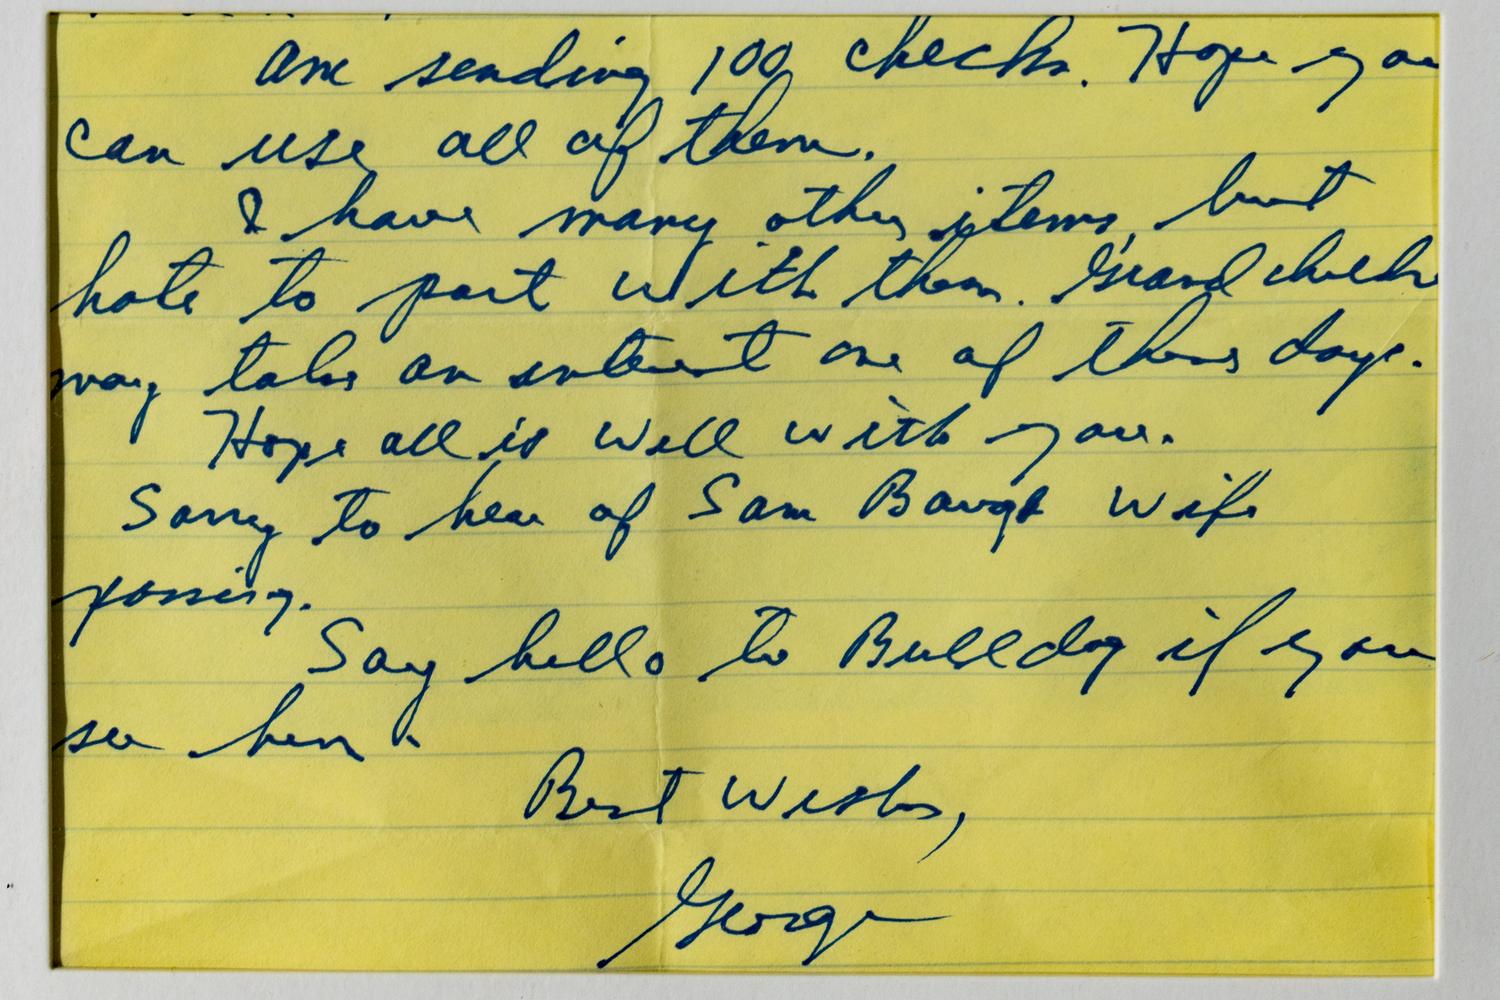 Am sending 100 checks. Hope you
can use all of them.
I have many other items, but
hate to part with them. Grandchildr
may take an interest one of these days.
Hope all is well with you.
Sorry to hear of Sam Baugh wife
passing.
Say hello to Bulldog if you
see him.
Best Wishes,
George